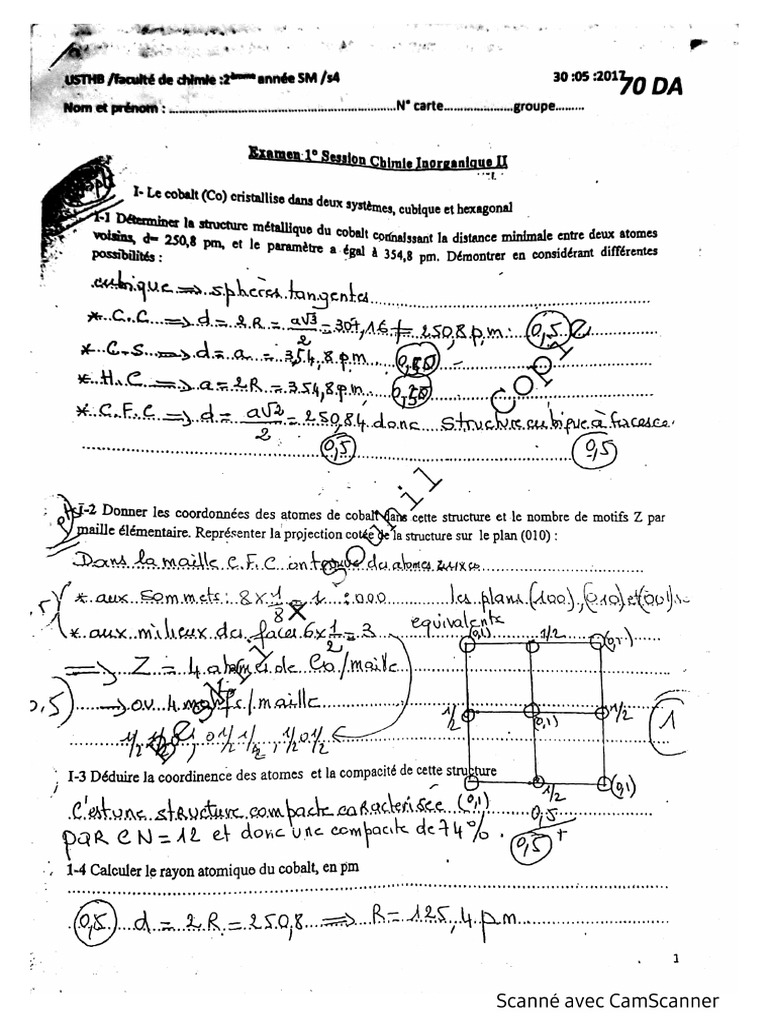 USTHB /faculté de chimie :2ième année SM /s4
30 :05 :2017
70 DA
Nom et prénom : ........................................................N° carte..................groupe.........
Examen 1° Session Chimie Inorganique II
I- Le cobalt (Co) cristallise dans deux systèmes, cubique et hexagonal
I-1 Déterminer la structure métallique du cobalt connaissant la distance minimale entre deux atomes
voisins, d= 250,8 pm, et le paramètre a égal à 354,8 pm. Démontrer en considérant différentes
possibilités :
cubique ⟹ sphères tangentes
* C.C ⟹ d = 2R = a√3/2 = 307,16 ≠ 250,8 p.m: 0,5
* C.S ⟹ d = a = 354,8 p.m
* H.C ⟹ a = 2R = 354,8 p.m
* C.F.C ⟹ d = a√2/2 = 250,84 donc structure cubique à faces c.
0,5 0,5
Copy
Sounil
I-2 Donner les coordonnées des atomes de cobalt dans cette structure et le nombre de motifs Z par
maille élémentaire. Représenter la projection cotée de la structure sur le plan (010) :
Dans la maille C.F.C on trouve des atomes
* aux sommets: 8 x 1/8 = 1 : 000 les plans (100), (010) et (001)
* aux milieux des faces 6 x 1/2 = 3 equivalents
⟹ Z = 4 atomes de Co/maille
0,5) → ou 4 motifs/maille
1/2 1/2 0, 0 1/2 1/2, 1/2 0 1/2
(0,1) 1/2 (0,1)
1/2 (0,1) 1/2
(0,1) 1/2 (0,1)
1
I-3 Déduire la coordinence des atomes et la compacité de cette structure
C'est une structure compacte caracterisée
PAR CN = 12 et donc une compacite de 74%.
0,5
0,5 +
1-4 Calculer le rayon atomique du cobalt, en pm
0,5 d = 2R = 250,8 ⟹ R = 125,4 pm
1
Scanné avec CamScanner